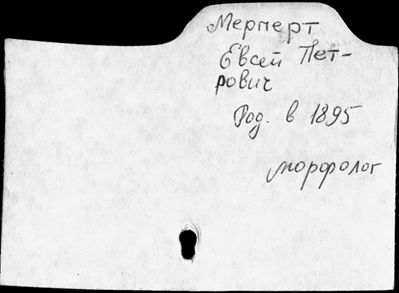 Мерперт
Евсей Пет-
рович
Род. в 1895
морфолог